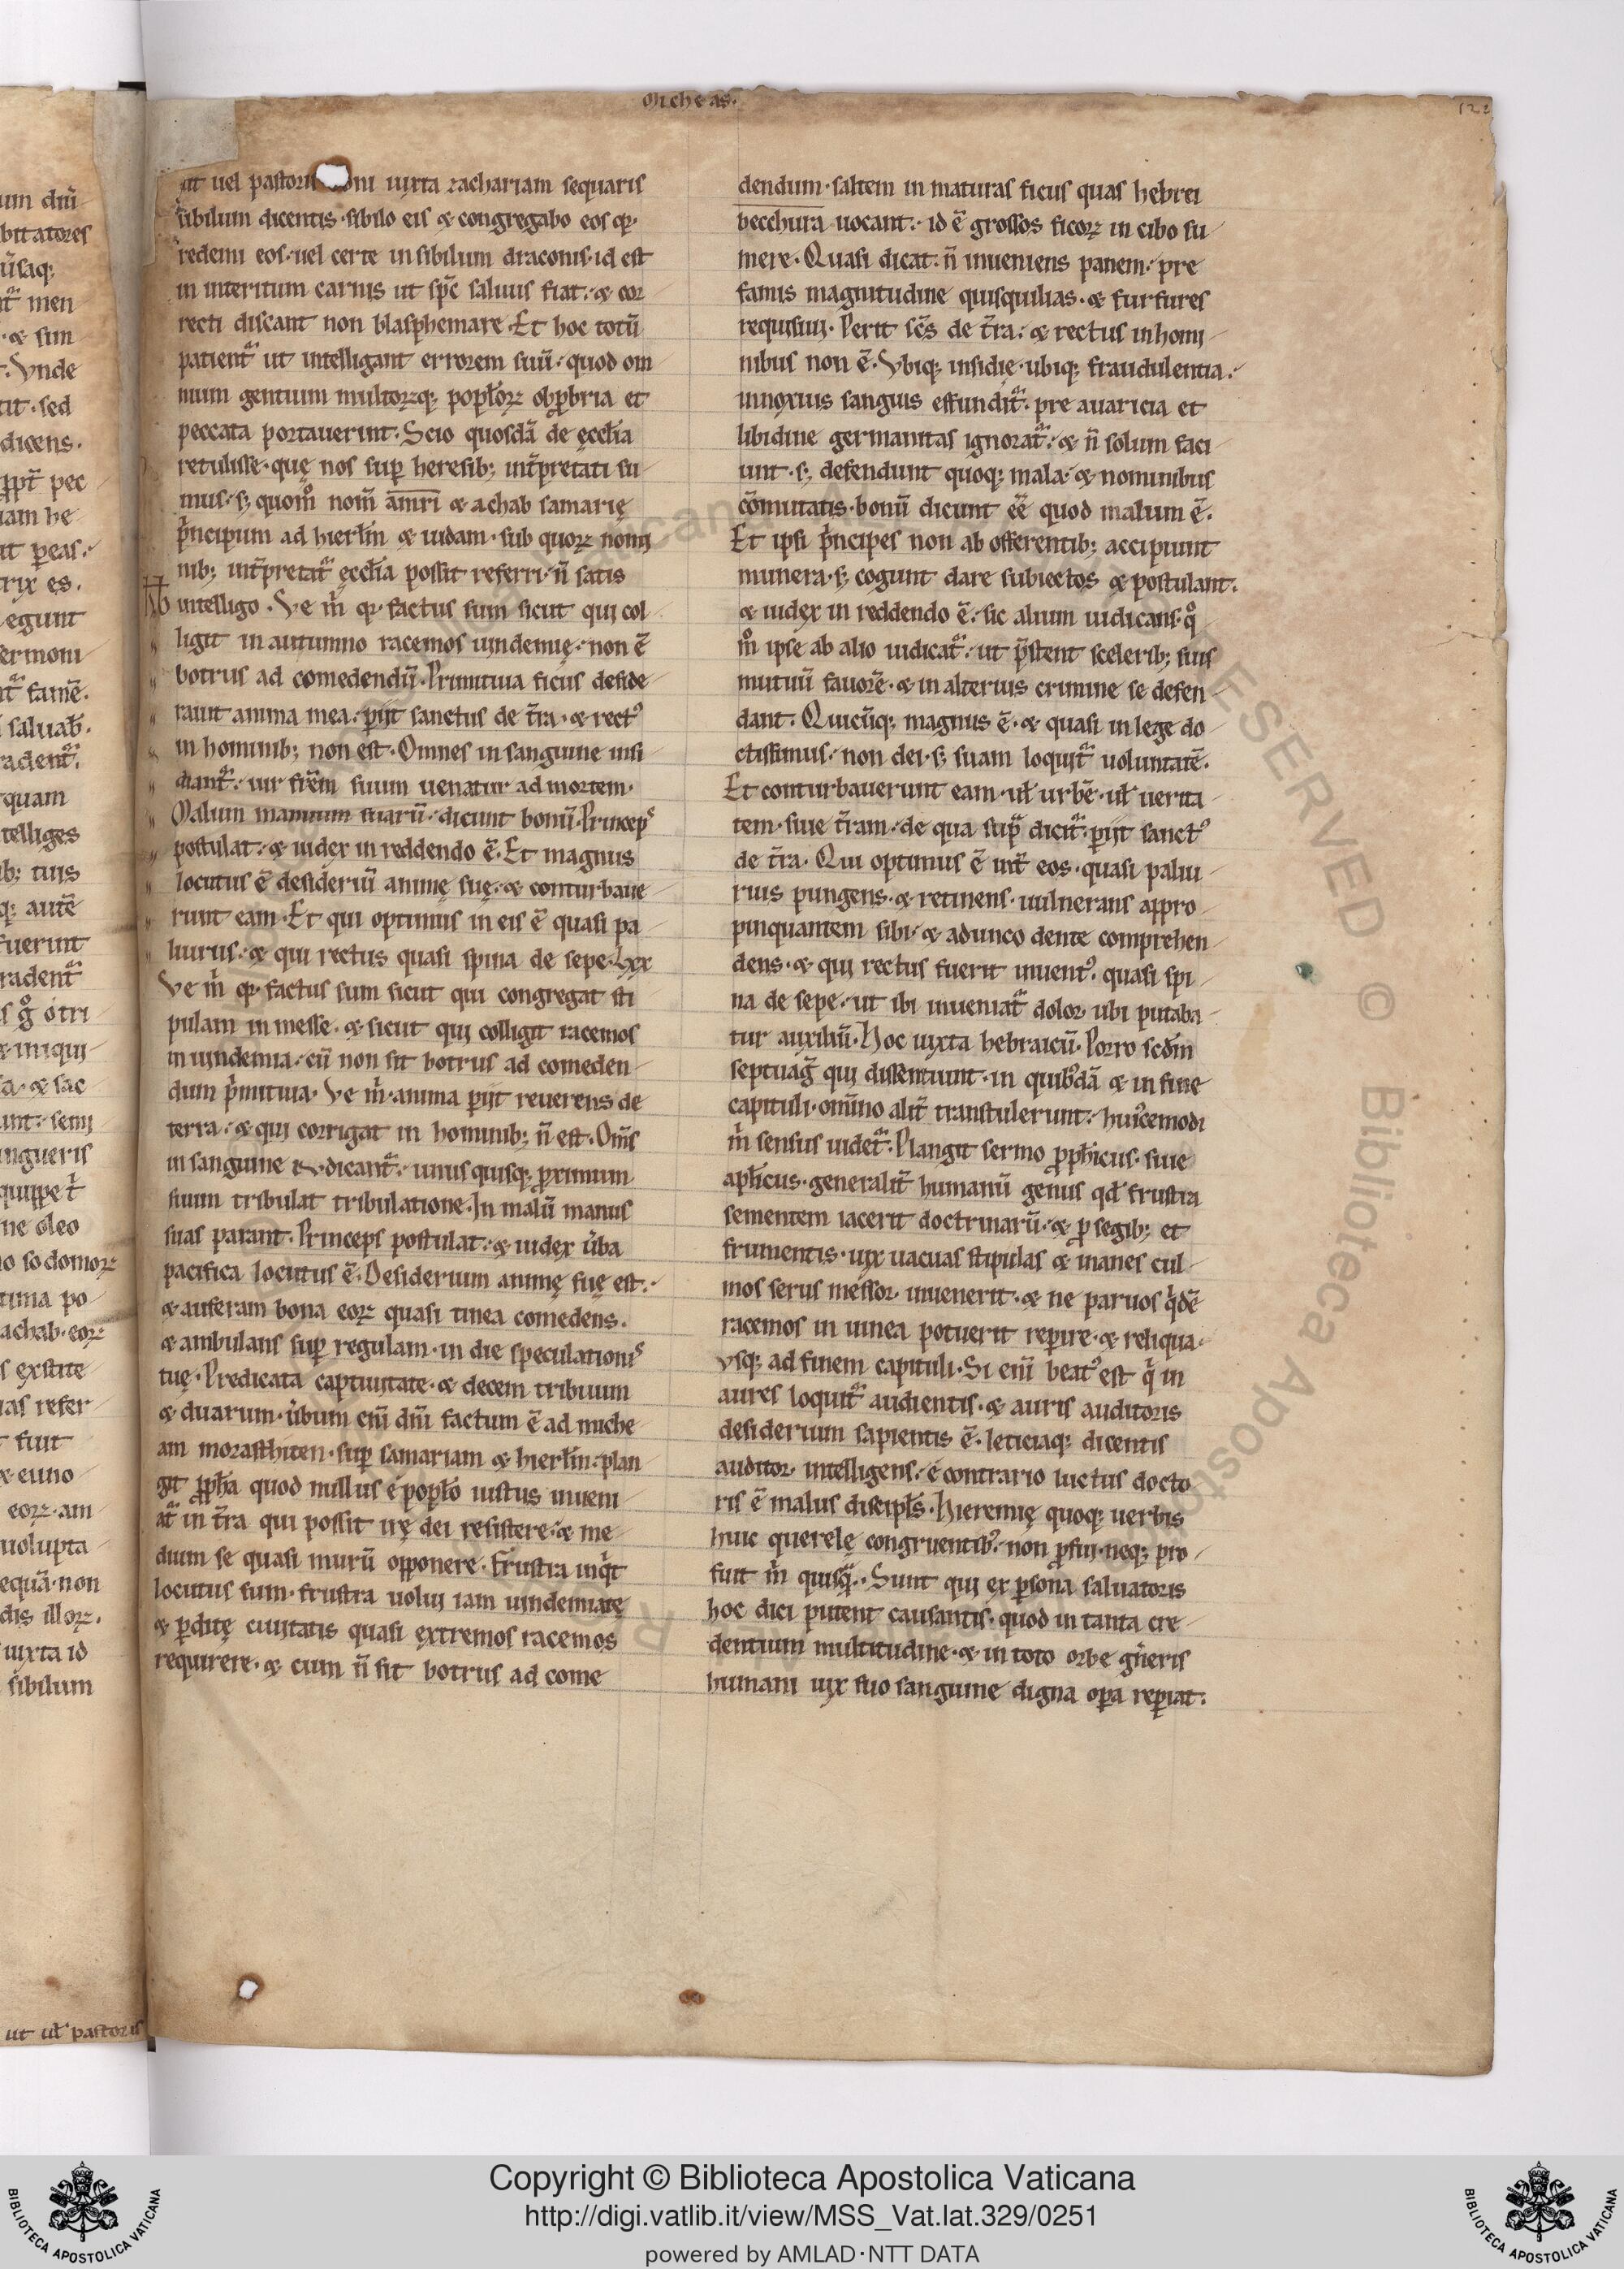 Micheas.
ut uel pastoris boni iuxta zachariam sequaris
sibilum dicentis· sibilo eis & congregabo eos qr̄
redemi eos· uel certe in sibilum draconis· id est
in interitum carnis ut sp̄c saluus fiat· & cor
recti discant non blasphemare· Et hoc totū
patient᷑ ut intelligant errorem suū· quod om
nium gentium multorꝝq; popl̄orꝝ obꝓbria et
peccata portauerint· Scio quosdā de ęccl̄ia
retulisse· quę nos suꝑ heresib; int̄pretati su
mus· s; quom̊ nom̄ amri & achab samarię
p̄ncipum ad hierl̄m & iudam· sub quorꝝ nomi
nib; int̄pretat᷑ ęccl̄ia possit referri· n̄ satis
intelligo· Ve m̄ qr̄ factus sum sicut qui col
ligit in autumno racemos uindemię· non ē
botrus ad comedendū· Primitiua ficus deside
rauit anima mea· ꝑijt sanctus de t̄ra· & rectꝰ
in hominib; non est· Omnes in sanguine insi
diant᷑· uir fr̄em suum uenatur ad mortem·
Malum manuum suarū· dicunt bonū· Princeps
postulat· & iudex in reddendo ē· Et magnus
locutus ē desideriū animę suę· & conturbaue
runt eam· Et qui optimus in eis ē quasi pa
liurus· & qui rectus quasi spina de sepe· Lxx
Ve m̄ qr̄ factus sum sicut qui congregat sti
pulam in messe· & sicut qui colligit racemos
in uindemia· cū non sit botrus ad comeden
dum p̄mitiua· Ve m̄· anima ꝑijt reuerens de
terra· & qui corrigat in hominib; n̄ est· Om̄s
in sanguine iudicant᷑· unus quisq; ꝓximum
suum tribulat tribulatione· In malū manus
suas parant· Princeps postulat· & iudex ūba
pacifica locutus ē· Desiderium animę suę est·
& auferam bona eorꝝ quasi tinea comedens·
& ambulans suꝑ regulam· in die speculationis
tuę· Predicata captiuitate· & decem tribuum
& duarum· ūbum eni᷑ dn̄i factum ē ad miche
am morasthiten· suꝑ samariam & hierl̄m· plan
git ꝓph̄a quod nullus ē popl̄o iustus inueni
at᷑ in t̄ra qui possit irę dei resistere· & me
dium se quasi murū opponere· Frustra inq̄t
locutus sum· frustra uolui iam uindemiatę
& ꝑditę ciuitatis quasi ęxtremos racemos
requirere· & cum n̄ sit botrus ad come
dendum· saltem in maturas ficus quas hebrei
becchura uocant· id ē grossos ficorꝝ in cibo su
mere· Quasi dicat· n̄ inueniens panem· pre
famis magnitudine quisquilias· & furfures
requisiui· Perit sc̄s de t̄ra· & rectus in homi
nibus non ē· Vbiq; insidię· ubiq; fraudulentia·
innoxius sanguis effundit᷑· pre auaricia et
libidine germanitas ignorat᷑· & n̄ solum faci
unt· s; defendunt quoq; mala· & nominibus
cōmutatis· bonū dicunt eē quod malum ē·
Et ipsi p̄ncipes non ab offerentib; accipiunt
munera· s; cogunt dare subiectos & postulant·
& iudex in reddendo ē· sic alium iudicans· q̊
m̊ ipse ab alio iudicat᷑· ut p̄stent scelerib; suis
mutuū fauorē· & in alterius crimine se defen
dant· Quicūq; magnus ē· & quasi in lege do
ctissimus· non dei· s; suam loquit᷑ uoluntatē·
Et conturbauerunt eam· ul̄ urbē· ul̄ uerita
tem· siue t̄ram· de qua sup̄ dicit᷑· ꝑijt sanctꝰ
de t̄ra· Qui optimus ē int̄ eos· quasi paliu
rus pungens· & retinens· uulnerans appro
pinquantem sibi· & adunco dente comprehen
dens· & qui rectus fuerit inuentꝰ· quasi spi
na de sepe· ut ibi inueniat᷑ dolor ubi putaba
tur auxiliū· Hoc iuxta hebraicū· Porro scd̄m
septuaḡ qui dissentiunt· in quibꝰdā & in fine
capituli· omīno alit̄ transtulerunt· huiꝰcemodi
m̄ sensus uidet᷑· Plangit sermo ꝓph̄icus· siue
apl̄icus· generalit̄ humanū genus qd̄ frustra
sementem iacerit doctrinarū· & ꝓ segib; et
frumentis· uix uacuas stipulas & inanes cul
mos serus messor inuenerit· & ne paruos q̄dē
racemos in uinea potuerit reꝑire· & reliqua·
vsq; ad finem capituli· Si eni᷑ beatꝰ est q̄ in
aures loquit᷑ audientis· & auris auditoris
desiderium sapientis ē· leticiaq; dicentis
auditor intelligens· e contrario luctus docto
ris ē malus discipl̄s· Hieremię quoq; uerbis
huic querelę congruentibꝰ· non ꝓfui· neq; pro
fuit m̄ quisq̄· Sunt qui ex ꝑsona saluatoris
hoc dici putent causantis· quod in tanta cre
dentium multitudine· & in toto orbe gn̄eris
humani uix suo sanguine digna oꝑa reꝑiat·
ut ul̄ pastoris
Copyright © Biblioteca Apostolica Vaticana
http://digi.vatlib.it/view/MSS_Vat.lat.329/0251
powered by AMLAD·NTT DATA
BIBLIOTECA APOSTOLICA VATICANA
BIBLIOTECA APOSTOLICA VATICANA